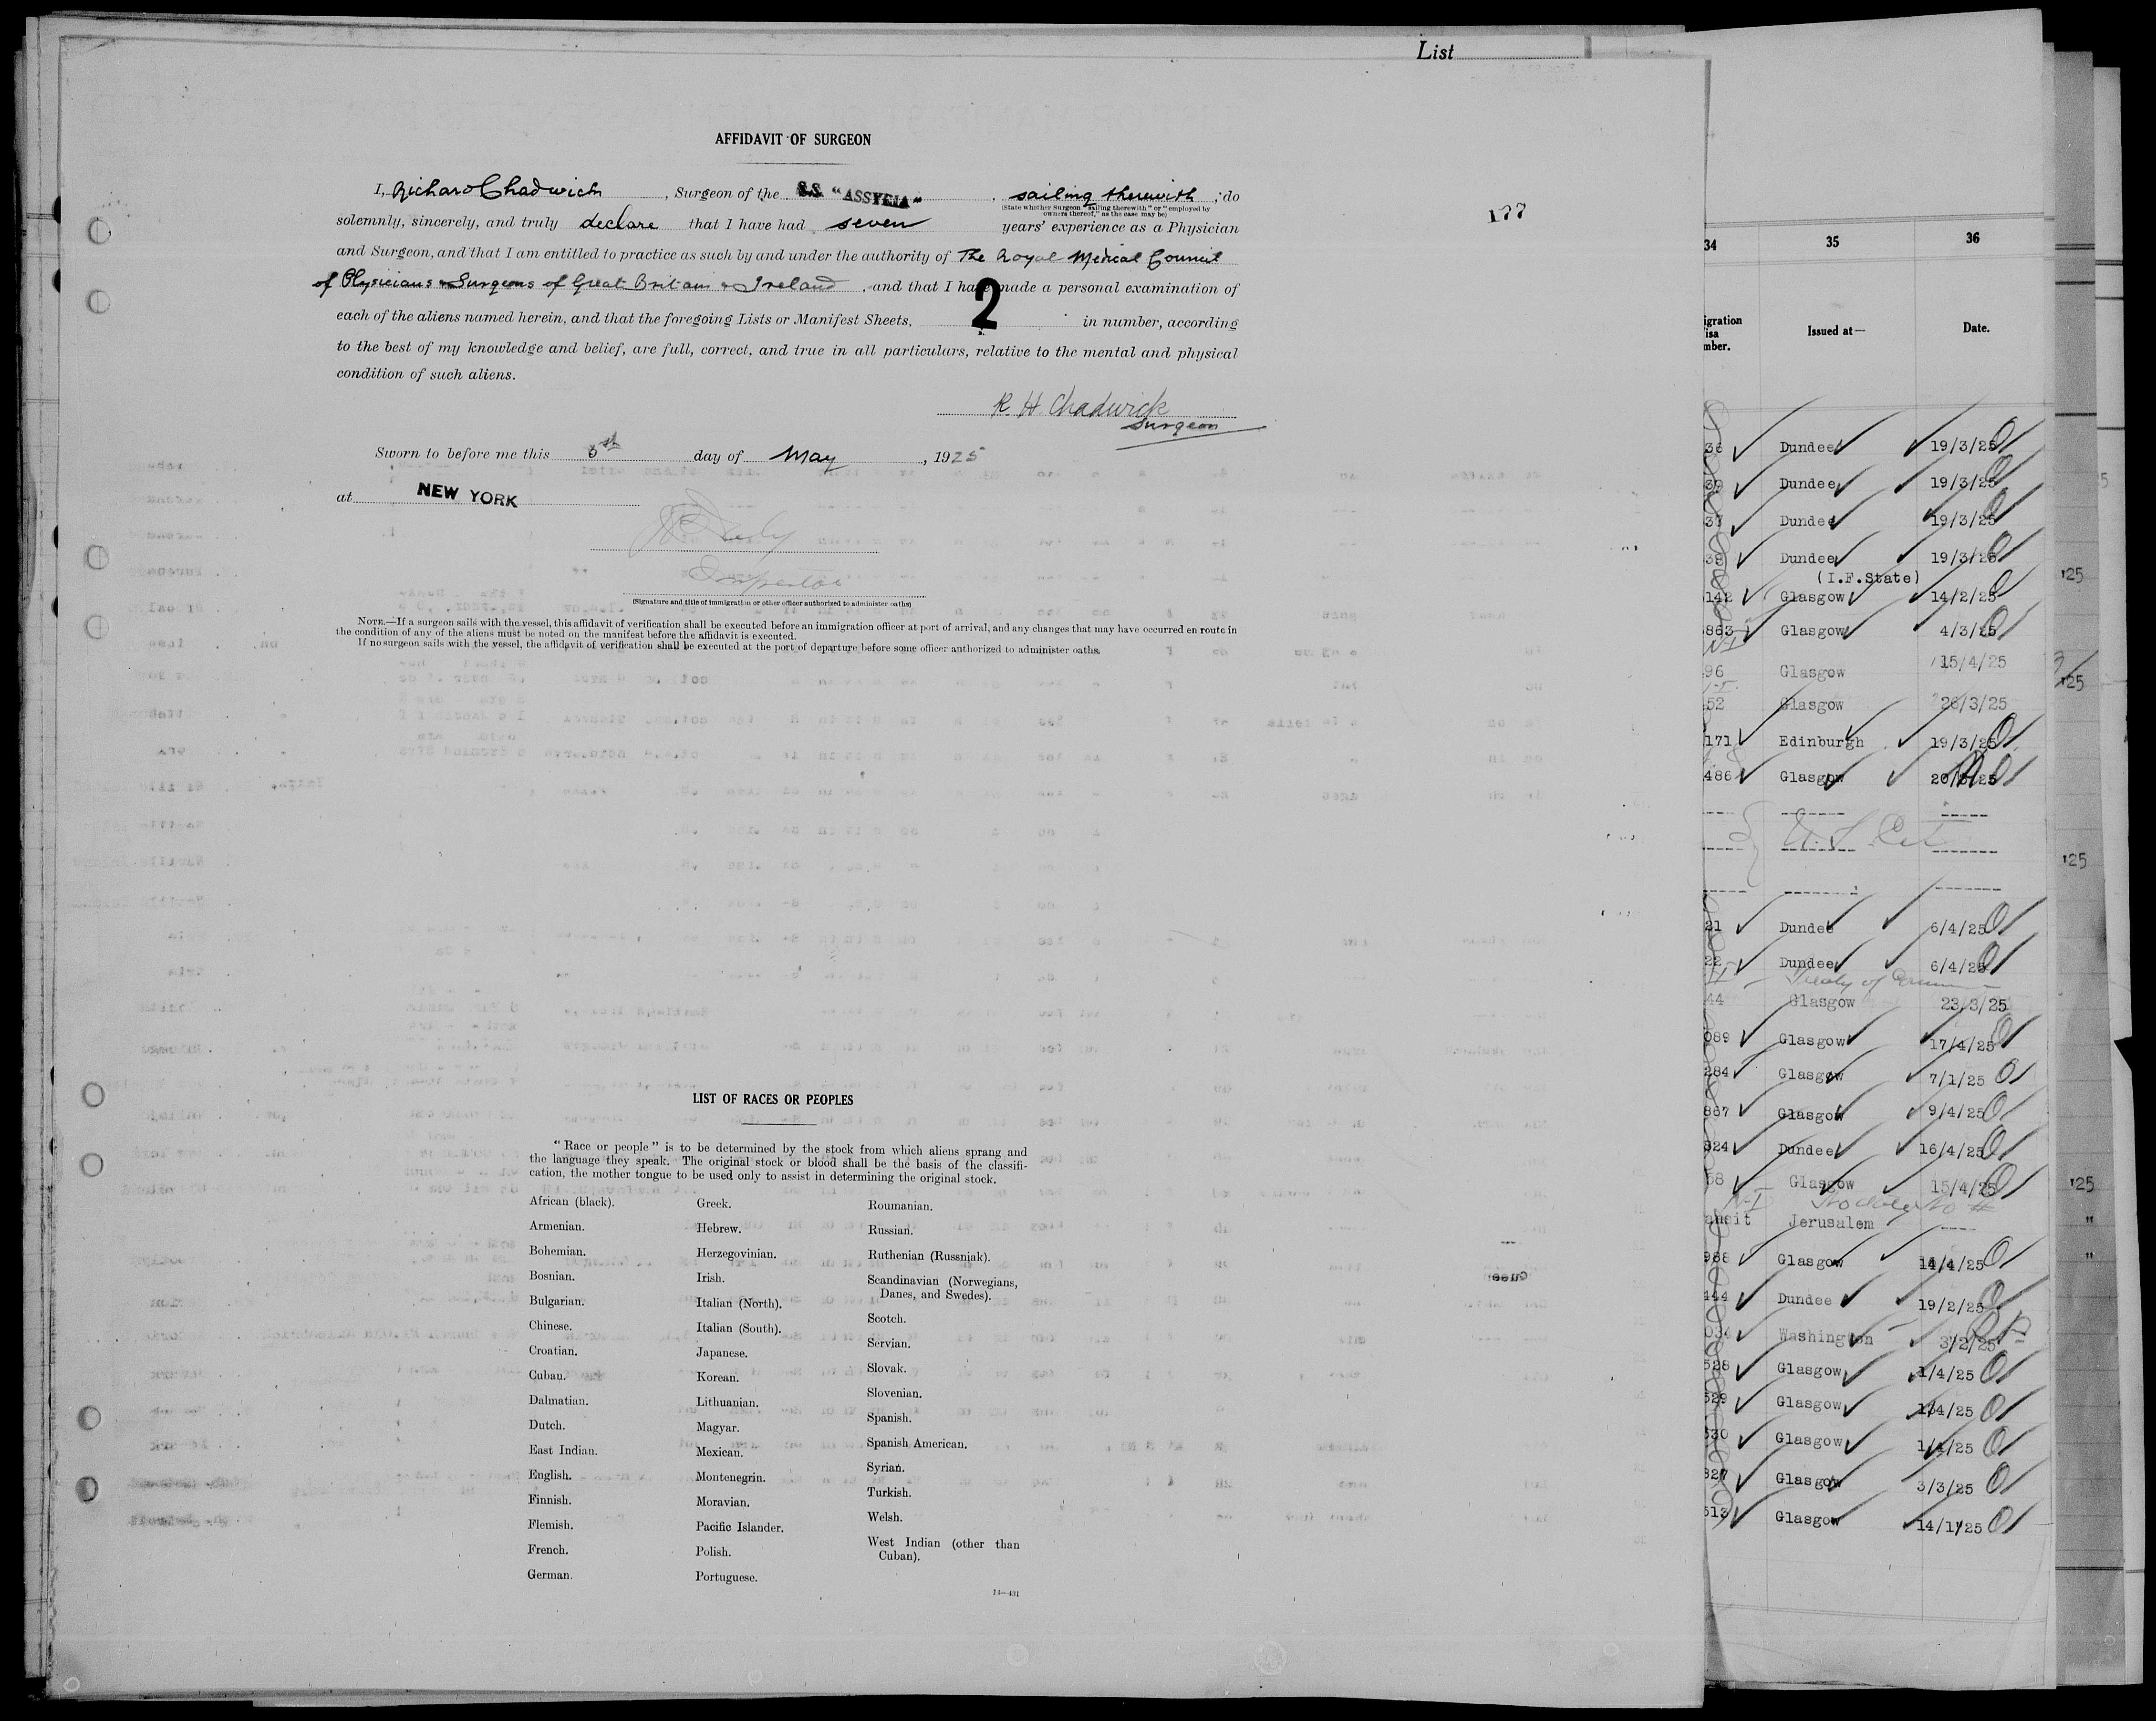 List
AFFIDAVIT OF SURGEON
I, Richard Chadwick, Surgeon of the S.S. "ASSYRIA", sailing therewith, do
(State whether Surgeon "sailing therewith" or "employed by
owners thereof," as the case may be)
solemnly, sincerely, and truly declare that I have had seven years' experience as a Physician
and Surgeon, and that I am entitled to practice as such by and under the authority of The Royal Medical Council
of Physicians & Surgeons of Great Britain & Ireland, and that I have made a personal examination of
each of the aliens named herein, and that the foregoing Lists or Manifest Sheets, 2 in number, according
to the best of my knowledge and belief, are full, correct, and true in all particulars, relative to the mental and physical
condition of such aliens.
R. H. Chadwick
Surgeon
Sworn to before me this 5th day of May, 1925
at NEW YORK
Inspector
(Signature and title of immigration or other officer authorized to administer oaths)
NOTE.—If a surgeon sails with the vessel, this affidavit of verification shall be executed before an immigration officer at port of arrival, and any changes that may have occurred en route in
the condition of any of the aliens must be noted on the manifest before the affidavit is executed.
If no surgeon sails with the vessel, the affidavit of verification shall be executed at the port of departure before some officer authorized to administer oaths.
177
LIST OF RACES OR PEOPLES
"Race or people" is to be determined by the stock from which aliens sprang and
the language they speak. The original stock or blood shall be the basis of the classifi-
cation, the mother tongue to be used only to assist in determining the original stock.
African (black).
Armenian.
Bohemian.
Bosnian.
Bulgarian.
Chinese.
Croatian.
Cuban.
Dalmatian.
Dutch.
East Indian.
English.
Finnish.
Flemish.
French.
German.
Greek.
Hebrew.
Herzegovinian.
Irish.
Italian (North).
Italian (South).
Japanese.
Korean.
Lithuanian.
Magyar.
Mexican.
Montenegrin.
Moravian.
Pacific Islander.
Polish.
Portuguese.
Roumanian.
Russian.
Ruthenian (Russniak).
Scandinavian (Norwegians,
Danes, and Swedes).
Scotch.
Servian.
Slovak.
Slovenian.
Spanish.
Spanish American.
Syrian.
Turkish.
Welsh.
West Indian (other than
Cuban).
14—431
34 35 36
igration
isa
mber.
Issued at—
Date.
36 Dundee 19/3/25
39 Dundee 19/3/25
37 Dundee 19/3/25
39 Dundee 19/3/25
(I.F.State)
142 Glasgow 14/2/25
863 Glasgow 4/3/25
96 Glasgow 15/4/25
52 Glasgow 26/3/25
171 Edinburgh 19/3/25
486 Glasgow 20/3/25
21 Dundee 6/4/25
22 Dundee 6/4/25
44 Glasgow 23/3/25
089 Glasgow 17/4/25
284 Glasgow 7/1/25
867 Glasgow 9/4/25
324 Dundee 16/4/25
58 Glasgow 15/4/25
ansit Jerusalem ----
988 Glasgow 14/4/25
444 Dundee 19/2/25
034 Washington 3/2/25
528 Glasgow 1/4/25
529 Glasgow 1/4/25
530 Glasgow 1/4/25
327 Glasgow 3/3/25
513 Glasgow 14/1/25
'25
'25
'25
'25
"
"